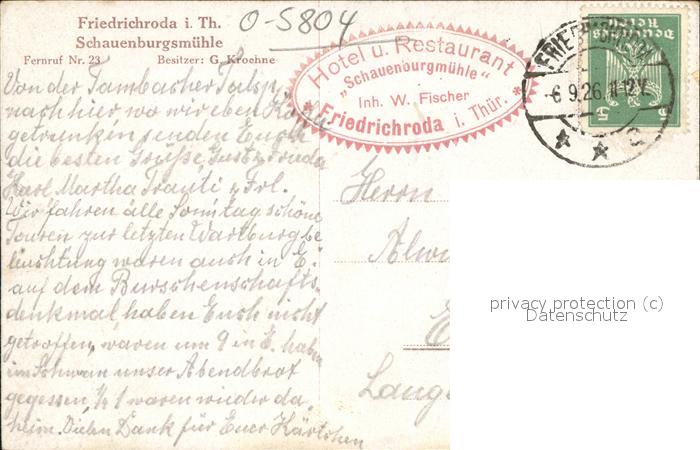 Friedrichroda i. Th.
Schauenburgsmühle
Fernruf Nr. 23 Besitzer: G. Kroehne
O-5804
Hotel u. Restaurant
„Schauenburgmühle“
Inh. W. Fischer
Friedrichroda i. Thür.
6 9.26. 11-12 V.
Deutsches Reich
5 5
Von der Tambacher Talsp.
nach hier wo wir eben Kaffee
getrunken senden Euch
die besten Grüße Gust. u. Frieda
Karl Martha Trauti u. Frl.
Wir fahren alle Sonntag schöne
Touren zur letzten Wartburg be
leuchtung waren auch in E.
auf dem Burschenschafts
denkmal haben Euch nicht
getroffen, waren um 9 in E. habn
im Schwan unser Abendbrot
gegessen ½ 1 waren wieder da
heim. Vielen Dank für Euer Kärtchen
Herrn
Alwi
E
Lange
privacy protection (c)
Datenschutz